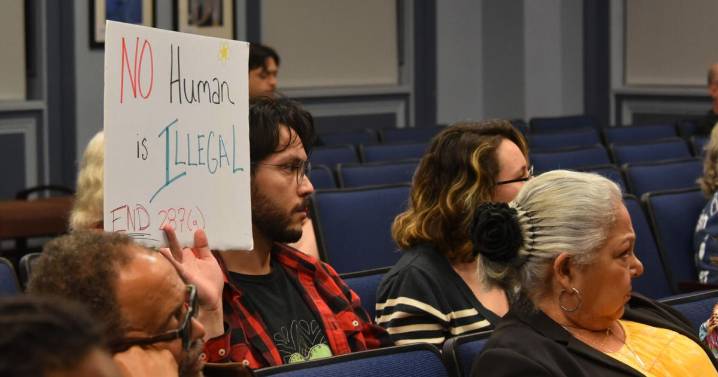 NO Human
is ILLEGAL
END 287(g)